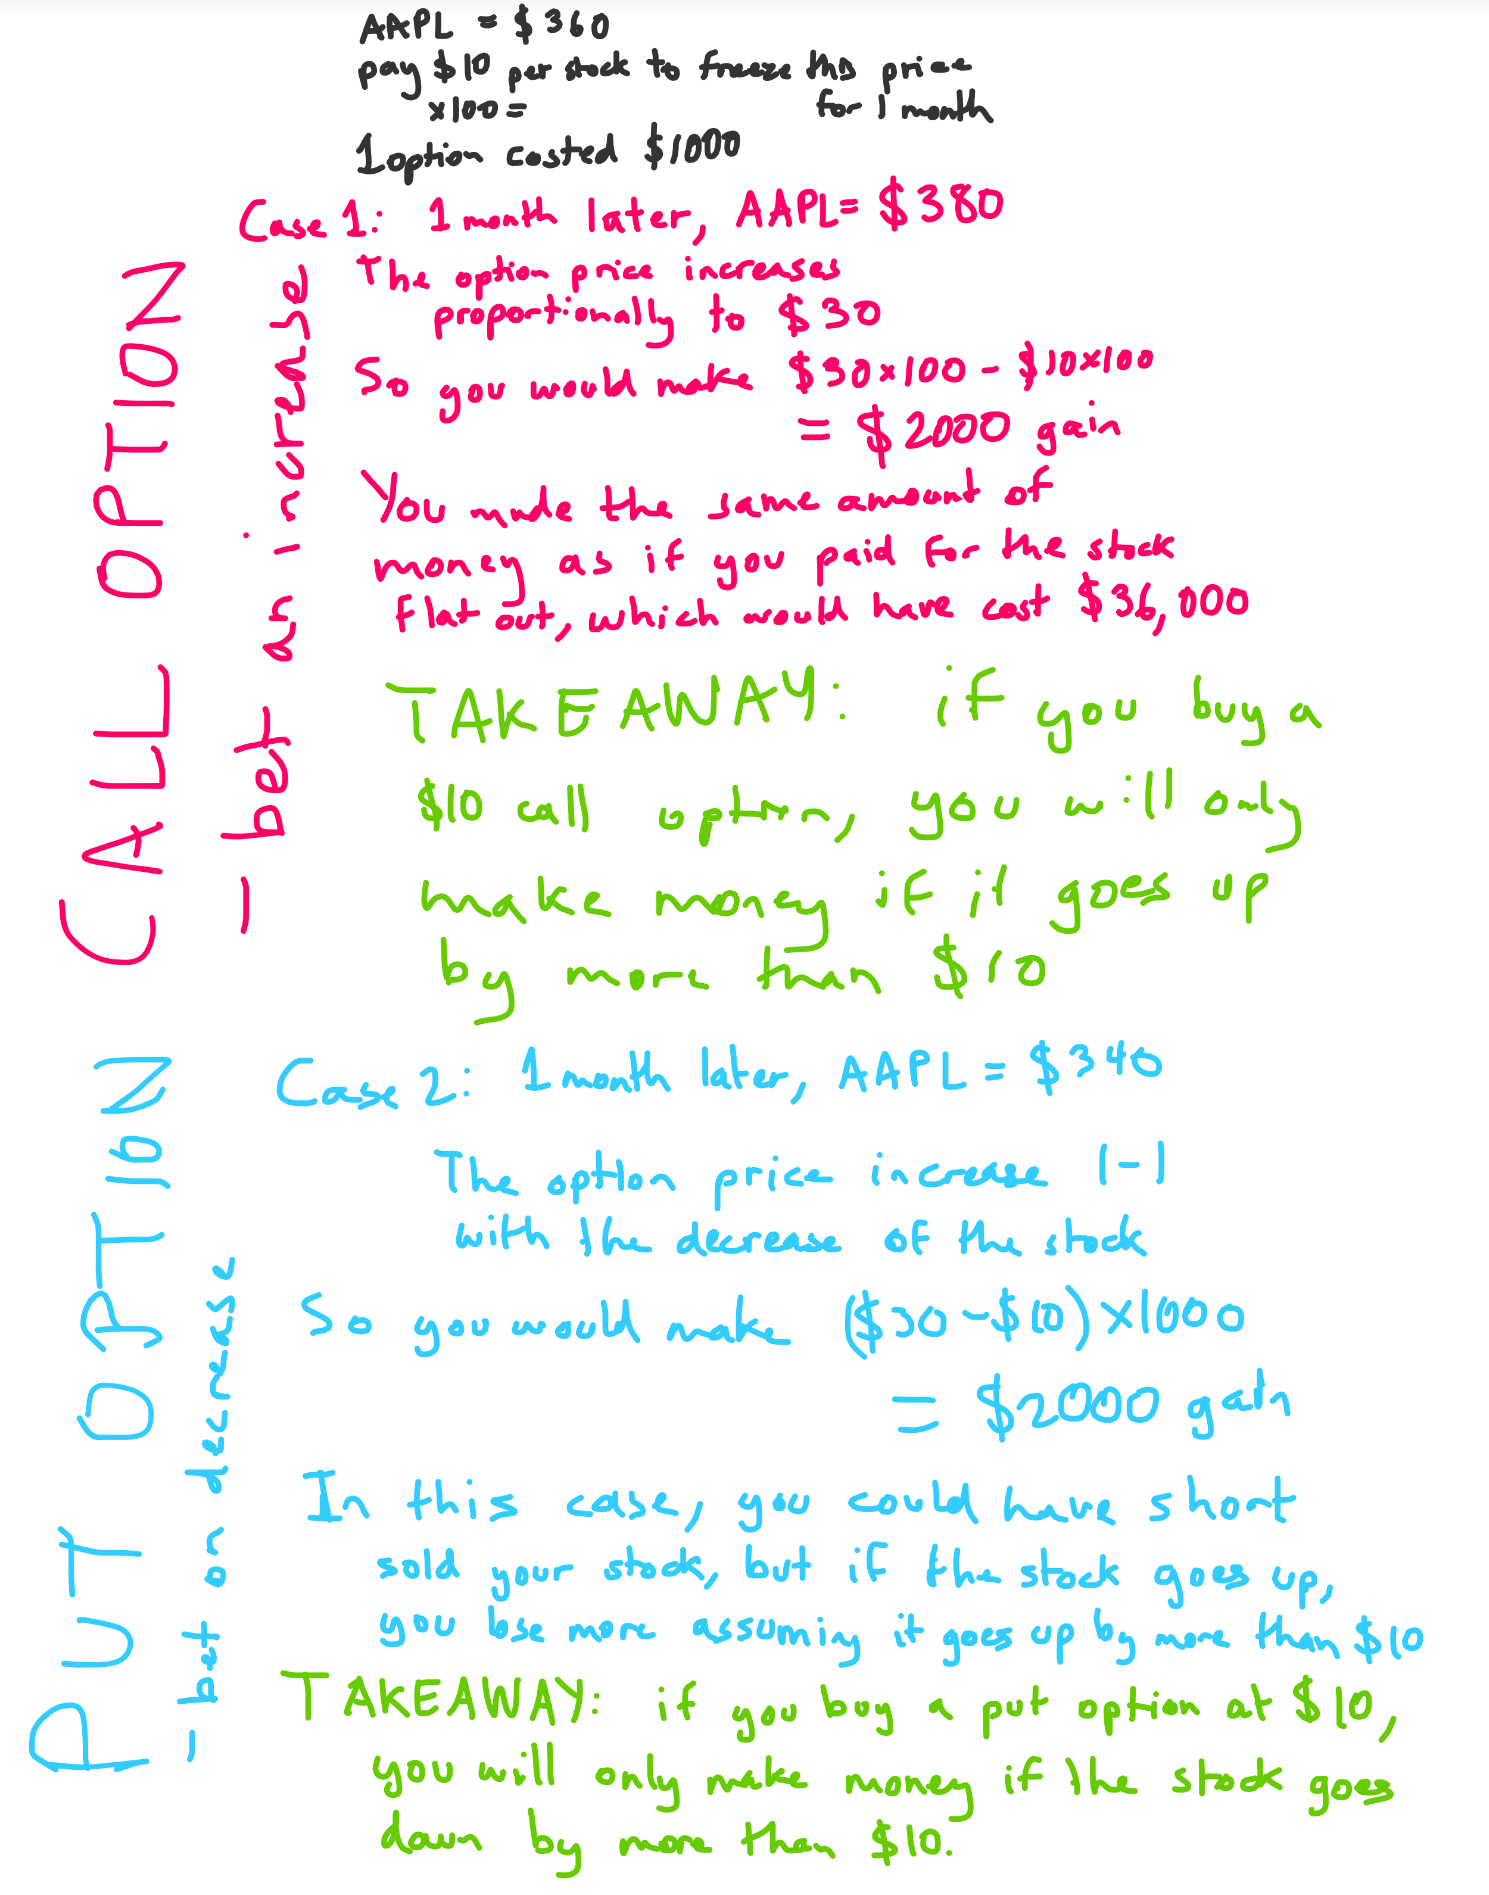 AAPL = $360
pay $10 per stock to freeze this price
x100 = for 1 month
1 option costed $1000
CALL OPTION
- bet an increase
Case 1: 1 month later, AAPL= $380
The option price increases
proportionally to $30
So you would make $30x100 - $10x100
= $2000 gain
You made the same amount of
money as if you paid for the stock
flat out, which would have cost $36,000
TAKEAWAY: if you buy a
$10 call option, you will only
make money if it goes up
by more than $10
PUT OPTION
- bet on decrease
Case 2: 1 month later, AAPL = $340
The option price increase 1-1
with the decrease of the stock
So you would make ($30-$10)x1000
= $2000 gain
In this case, you could have short
sold your stock, but if the stock goes up,
you lose more assuming it goes up by more than $10
TAKEAWAY: if you buy a put option at $10,
you will only make money if the stock goes
down by more than $10.